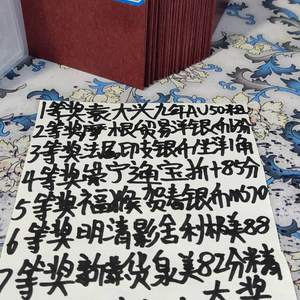 1等奖袁大头九年AU50粗
2等奖摩根贸易洋银币6分
3等奖法属印支银币坐洋1角
4等奖崇宁通宝折十85分
5等奖福猴贺春银币m570
6等奖明清影舌利林美88
7等奖新莽货泉美82分
大奖